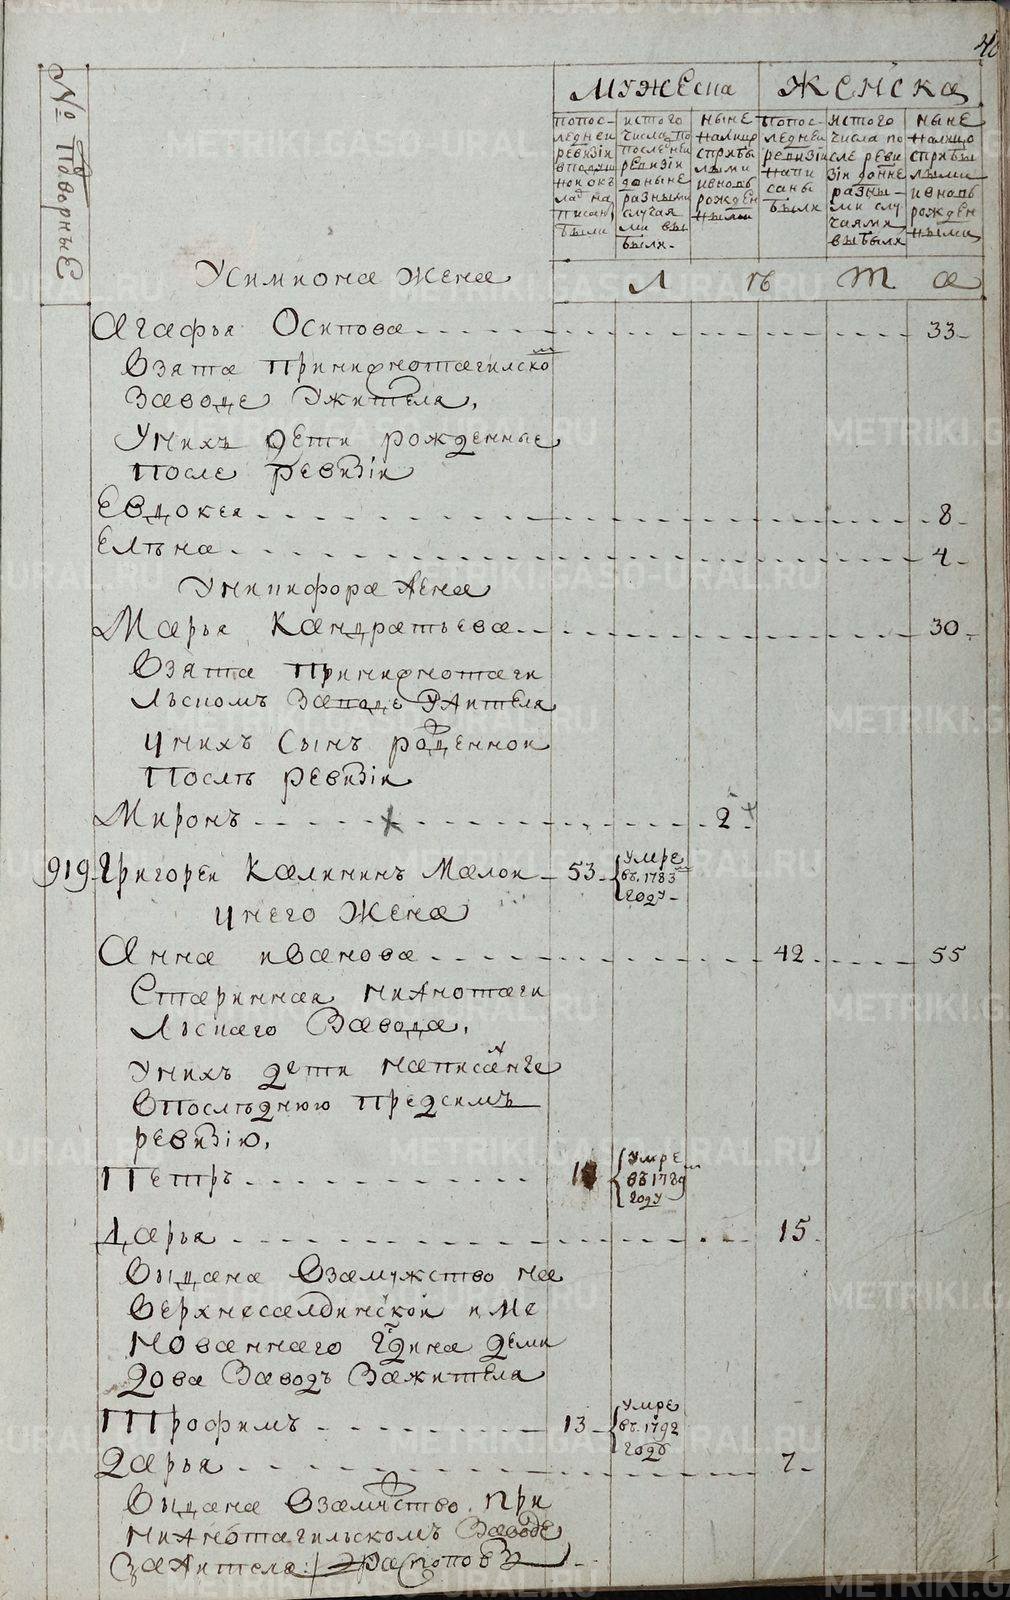 40
№ Дворныѣ
Мужеска
Женска
попос-
ледней
ревизіи
вподуш
ной ок
лад на
писан
были
истого
числа по
последней
ревизіи
доныне
разными
случая
ми вы
были.
ныне
налицо
сприбы
лыми
ивновь
рожден
ными
попос-
ледней
ревизіи
напи
саны
были
истого
числа по
сле реви
зіи доные
разны-
ми слу
чаями
выбыли
ныне
налицо
сприбы
лыми
ивновь
рожден
ными
Л ѣ т а
Усимиона жена
Агафья Осипова 33
Взята принижнотагилско
Заводе Ужителя,
Унихъ дети рожденные
после ревизіи
Евдокея 8
Елѣна 4
Уникифора жена
Марья Кандратьева 30
Взята принижнотаги
льсномъ Заводе Ужителя
Унихъ сынъ рожденной
послѣ ревизіи
Миронъ 2
919 Григорей Калининъ Малой 53 Умре
въ 1783
году
Унего жена
Анна иванова 42 55
Старинная нижнотаги
льснаго Завода,
Унихъ дети написанъе
Впослѣднюю предсимъ
ревизію,
Петръ Умре
въ 1789
году
Дарья 15
Выдана Взамужство на
Верхнесалдинской име
нованнаго Гдина деми
дова Заводъ Зажителя
Трофимъ 13 Умре
въ 1792
году
Дарья 7
Выдана Взамужство при
нижнотагильскомъ Заводе
Зажителя Распопов